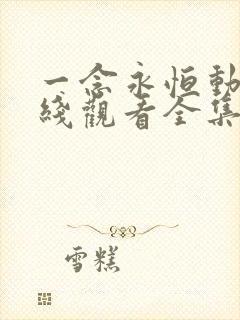 一念永恒動
綫觀看全集
雪糕